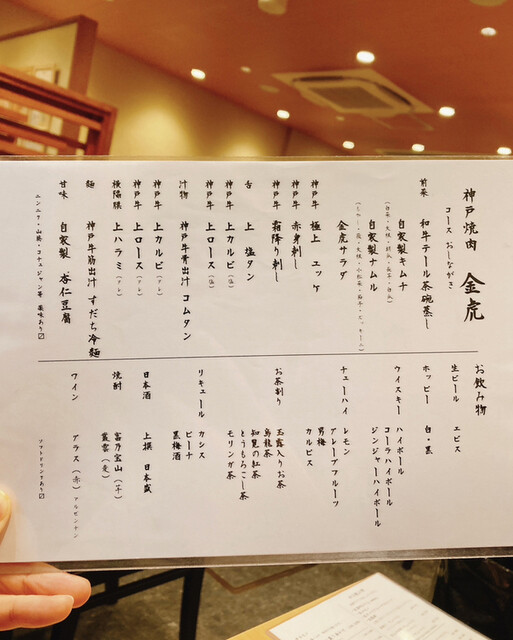 神戸焼肉 金虎
コース おしながき
前菜 和牛テール茶碗蒸し
自家製キムチ
自家製ナムル
金虎サラダ
神戸牛 極上 ユッケ
神戸牛 赤身刺し
神戸牛 霜降り刺し
舌 上 塩タン
神戸牛 上カルビ(塩)
神戸牛 上ロース(塩)
汁物 神戸牛骨出汁 コムタン
神戸牛 上カルビ(タレ)
神戸牛 上ロース(タレ)
横隔膜 上ハラミ(タレ)
麺 神戸牛筋出汁 すだち冷麺
甘味 自家製 杏仁豆腐
ニンニク・山葵・コチュジャン等 薬味あり〼
お飲み物
生ビール エビス
ホッピー 白・黒
ウイスキー ハイボール
コーラハイボール
ジンジャーハイボール
チューハイ レモン
グレープフルーツ
男梅
カルピス
お茶割り 玉露入りお茶
烏龍茶
知覧の紅茶
とうもろこし茶
モリンガ茶
リキュール カシス
ピーチ
黒梅酒
日本酒 上撰 日本盛
焼酎 富乃宝山(芋)
叢雲(麦)
ワイン グラス(赤)アルゼンチン
ソフトドリンクあり〼